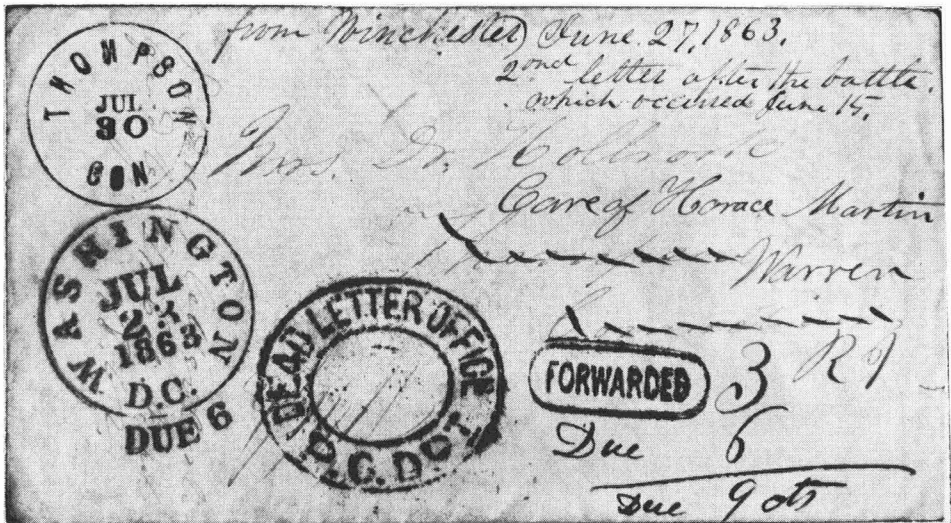 from Winchester) June. 27, 1863.
2ond letter after the battle.
which occured June 15.
THOMPSON
JUL
30
CON
Mrs. Dr. Holbrook
Care of Horace Martin
Warren
R I
WASHINGTON
JUL
23
1863
D.C.
DUE 6
DEAD LETTER OFFICE
P.O.DPT.
FORWARDED 3
Due 6
Due 9 cts